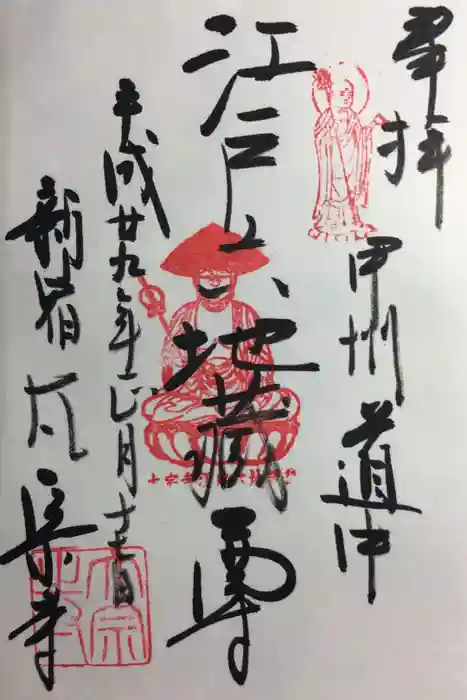 奉拝
甲州道中
江戸六地蔵尊
平成廿九年正月十七日
新宿 太宗寺